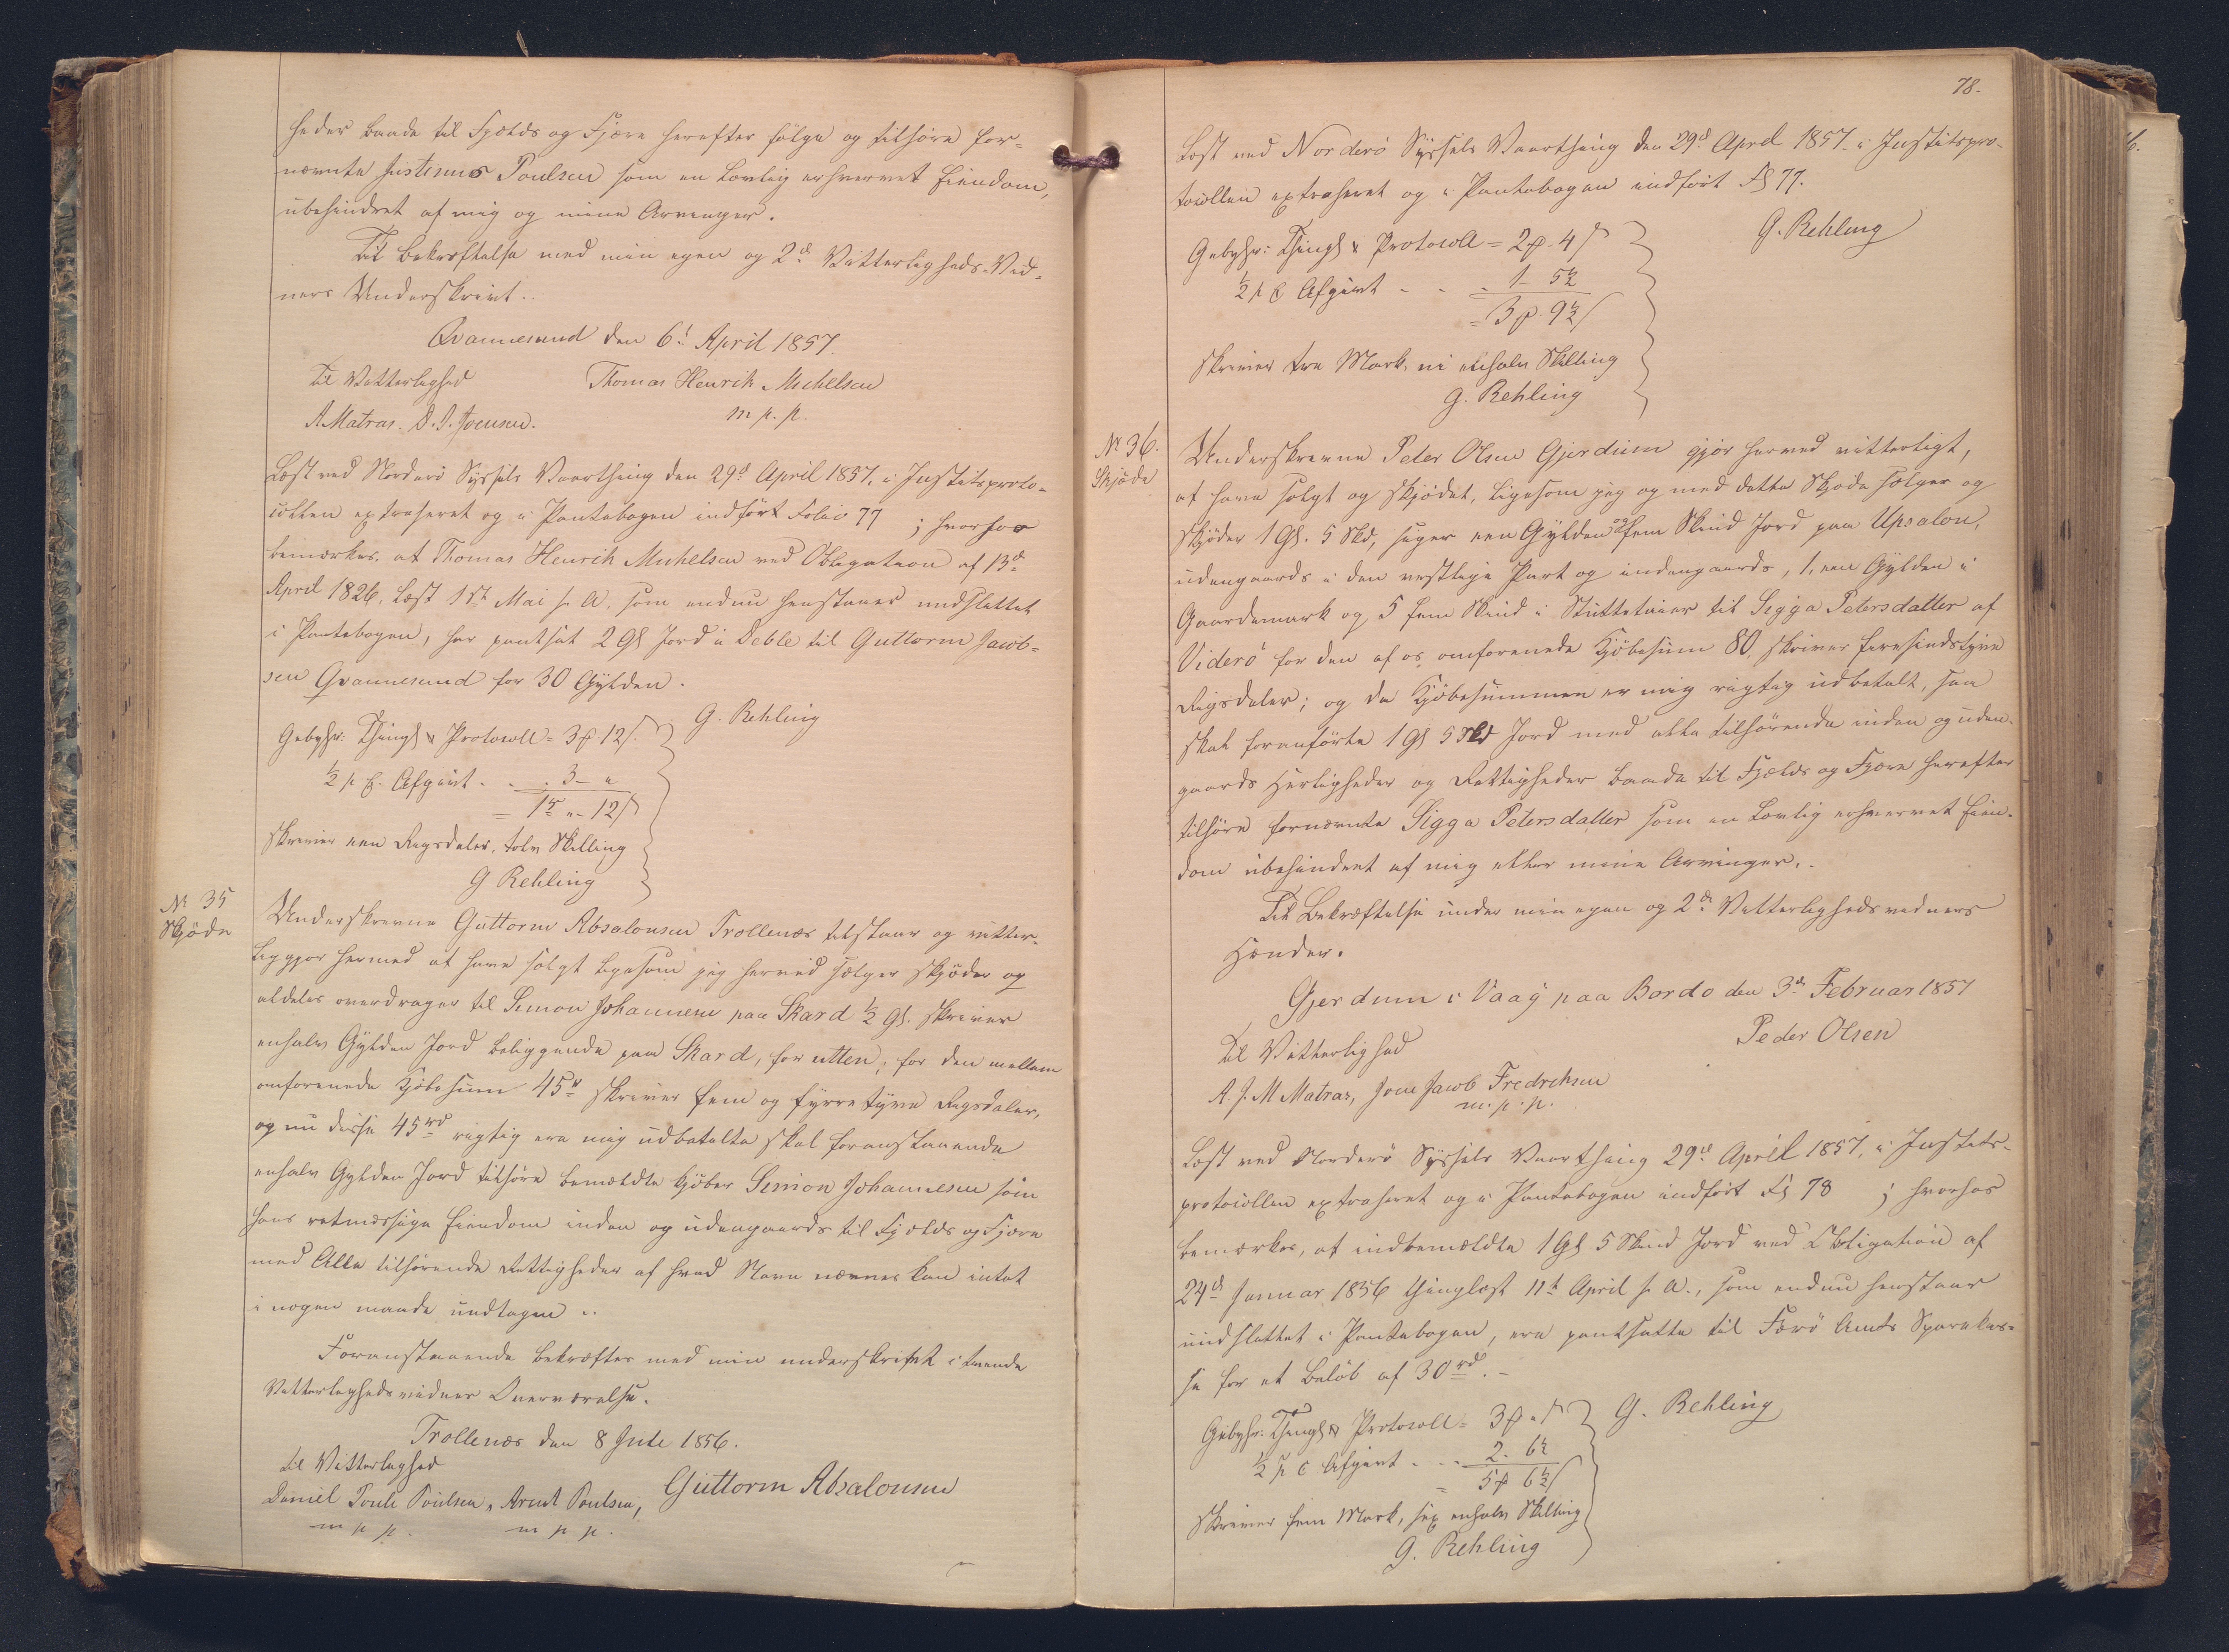 heder baade til Fjelds og Fjære herefter følge og tilhøre for-
nævnte Justinus Poulsen som en lovlig erhvervet Eiendom,
ubehindret af mig og mine Arvinger.
Til Bekræftelse med min egen og 2de Vitterligheds-Vid-
ners Underskrivt..
Qvannesund den 6te April 1857.
Til Vitterlighed Thomas Henrik Michelsen
A Matras. D. J. Joensen. m. p. p.
Læst ved Norderø Syssels Vaarthing den 29de April 1857, i Justitsproto-
collen extraheret og i Pantebogen indført Folio 77 ; hvorhos
bemærkes, at Thomas Henrik Michelsen ved Obligation af 13de
April 1826, læst 1ste Mai s. A. som endnu henstaaer uudslettet
i Pantebogen, har pantsat 2 Gl Jord i Deble til Guttorm Jacob-
sen Qvannesund for 30 Gylden.
G. Rehling
Gebyhr: Thingl & Protocoll = 3 ₰ 12 ſ.
½ p C. Afgivt . . . 3 - "
= 1rd " - 12 ſ
skriver een Rigsdaler, tolv Skilling
G Rehling
No 35
Skjøde
Underskrevne Guttorm Absalonsen Trollenæs tilstaaer og vitter-
liggjør hermed at have solgt ligesom jeg herved sælger skjøder og
aldeles overdrager til Simon Johannesen paa Skard ½ Gl. skriver
enhalv Gylden Jord beliggende paa Skard, for den mellem
omforenede Kjøbesum 45rd skriver fem og fyrretyve Rigsdaler,
og nu disse 45rd rigtig ere mig udbetalte skal foranstaaende
enhalv Gylden Jord tilhøre bemældte Kjøber Simon Johannesen som
hans retmæssige Eiendom inden og udengaards til Fjelds og Fjære
med Alle tilhørende Rettigheder af hvad Navn nævnes kan intet
i nogen maade undtagen ..
Foranstaaende bekræftes med min underskrift i tvende
Vitterlighedsvidner Overværelse.
Trollenæs den 8 Jule 1856.
til Vitterlighed
Daniel Poule Poulsen, Arent Poulsen, Guttorm Absalonsen
m p p. m p p.
78.
Læst ved Norderø Syssels Vaarthing den 29de April 1857 i Justitspro-
tocollen extraheret og i Pantebogen indført Fol 77.
G. Rehling
Gebyhr: Thingl & Protocoll = 2 ₰ 4 ſ
½ p C Afgivt - - - 1 - 5½
= 3 ₰ 9½ ſ
skriver tre Mark, ni enhalv Skilling
G. Rehling
No 36.
Skjøde
Underskrevne Peter Olsen Gjerdum gjør herved vitterligt,
at have solgt og skjødet, ligesom jeg og med dette Skjøde sælger og
skjøder 1 Gl. 5 Skd, siger een Gylden og fem Skind Jord paa Upsalon,
udengaards i den vestlige Part og indengaards, 1, een Gylden i
Gaardemark og 5 fem Skind i til Sigga Petersdatter af
Viderø for den af os omforenede Kjøbesum 80, skriver firesindstyve
Rigsdaler; og da Kjøbesummen er mig rigtig udbetalt, saa
skal foranførte 1 Gl 5 Skd Jord med alle tilhørende inden og uden-
gaards Herligheder og Rettigheder baade til Fjelds og Fjære herefter
tilhøre fornævnte Sigga Petersdatter som en lovlig erhvervet Eien-
dom ubehindret af mig eller mine Arvinger. -
Til Bekræftelse under min egen og 2de Vitterlighedsvidners
Hænder.
Gjerdum i Vaag paa Bordø den 3de Februar 1857
Til Vitterlighed Peder Olsen
A. J. M Matras, Joen Jacob Fredriksen
m. p. p.
Læst ved Norderø Syssels Vaarthing 29de April 1857, i Justits-
protocollen extraheret og i Pantebogen indført Fol 78 ; hvorhos
bemærkes, at indbemældte 1 Gl 5 Skind Jord ved Obligation af
24de Januar 1856 thinglæst 11te April s. A., som endnu henstaaer
uudslettet i Pantebogen, ere pantsatte til Færø Amts Sparekas-
se for et Beløb af 30rd. -
G. Rehling
Gebyhr: Thingl & Protocoll = 3 ₰ " ſ
½ p C Afgivt . . - 2. 6½
= 5 ₰ 6½ ſ
skriver fem Mark, sex enhalv Skilling
G. Rehling